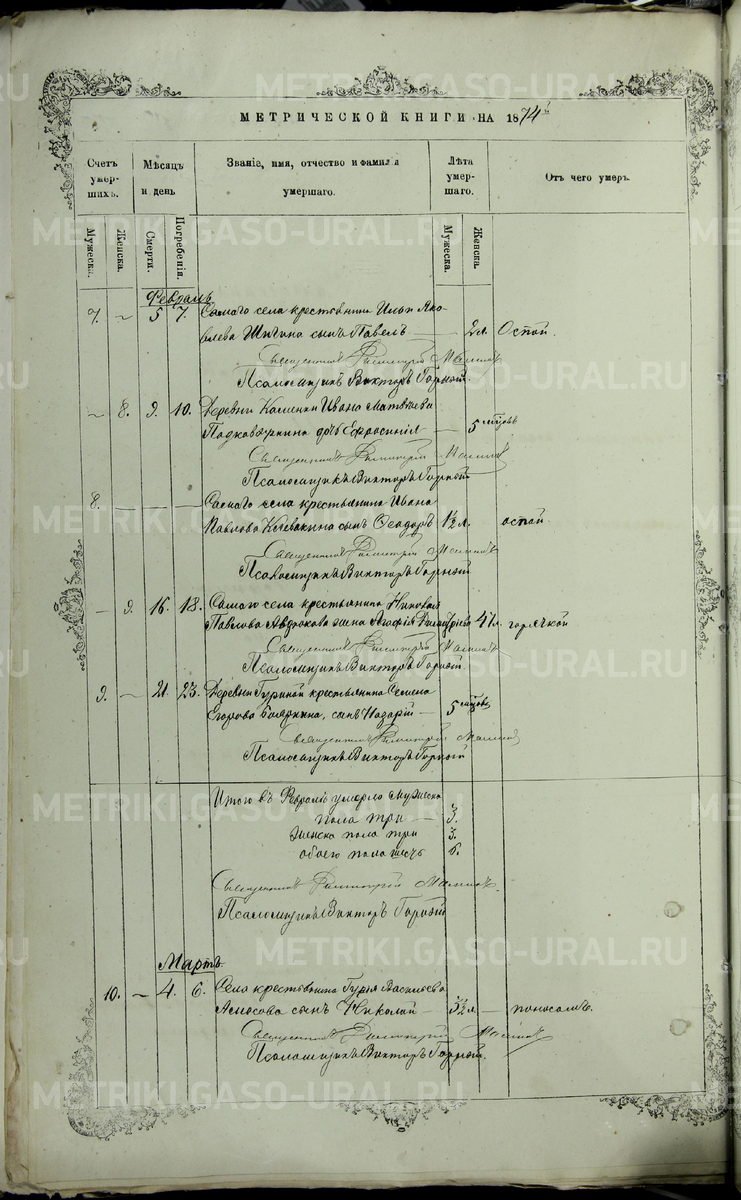 МЕТРИЧЕСКОЙ КНИГИ НА 1874
Счетъ умерших. Мѣсяцъ и день Званіе, имя, отчество и фамилія умершаго. Лѣта умершаго. Отъ чего умеръ.
Мужеска. Женска. Смерти. Погребенія. Мужеска. Женска.
Февраль
7. – 5 7. Самаго села крестьянина Ильи Яко-
влева сынъ Павелъ — 2 л. Оспой.
Священникъ Димитрій
Псаломщикъ Викторъ Горный.
– 8. 9. 10. Деревни Каменки Ивана Матвѣева
дочь Ефросинія — 5 мѣсяцовъ
Священникъ Димитрій
Псаломщикъ Викторъ Горный
8. – – – Самаго села крестьянина Ивана
Павлова сынъ Ѳеодоръ 1½ л. оспой.
Священникъ Димитрій
Псаломщикъ Викторъ Горный
– 9. 16. 18. Самаго села крестьянина
Павлова жена Агафія 47 л. горячкой
Священникъ Димитрій
Псаломщикъ Викторъ Горный.
9. – 21. 23. Деревни крестьянина Семена
Егорова сынъ Назарій — 5 мѣсяцовъ
Священникъ Димитрій
Псаломщикъ Викторъ Горный
Итого въ Февралѣ умерло мужеска
пола три — 3.
женска пола три 3.
обоего пола шесть 6.
Священникъ Димитрій
Псаломщикъ Викторъ Горный
Мартъ.
10. – 4. 6. Села крестьянина Гурія Васильева
сынъ Николай — поносомъ.
Священникъ Димитрій
Псаломщикъ Викторъ Горный.
METRIKI.GASO-URAL.RU